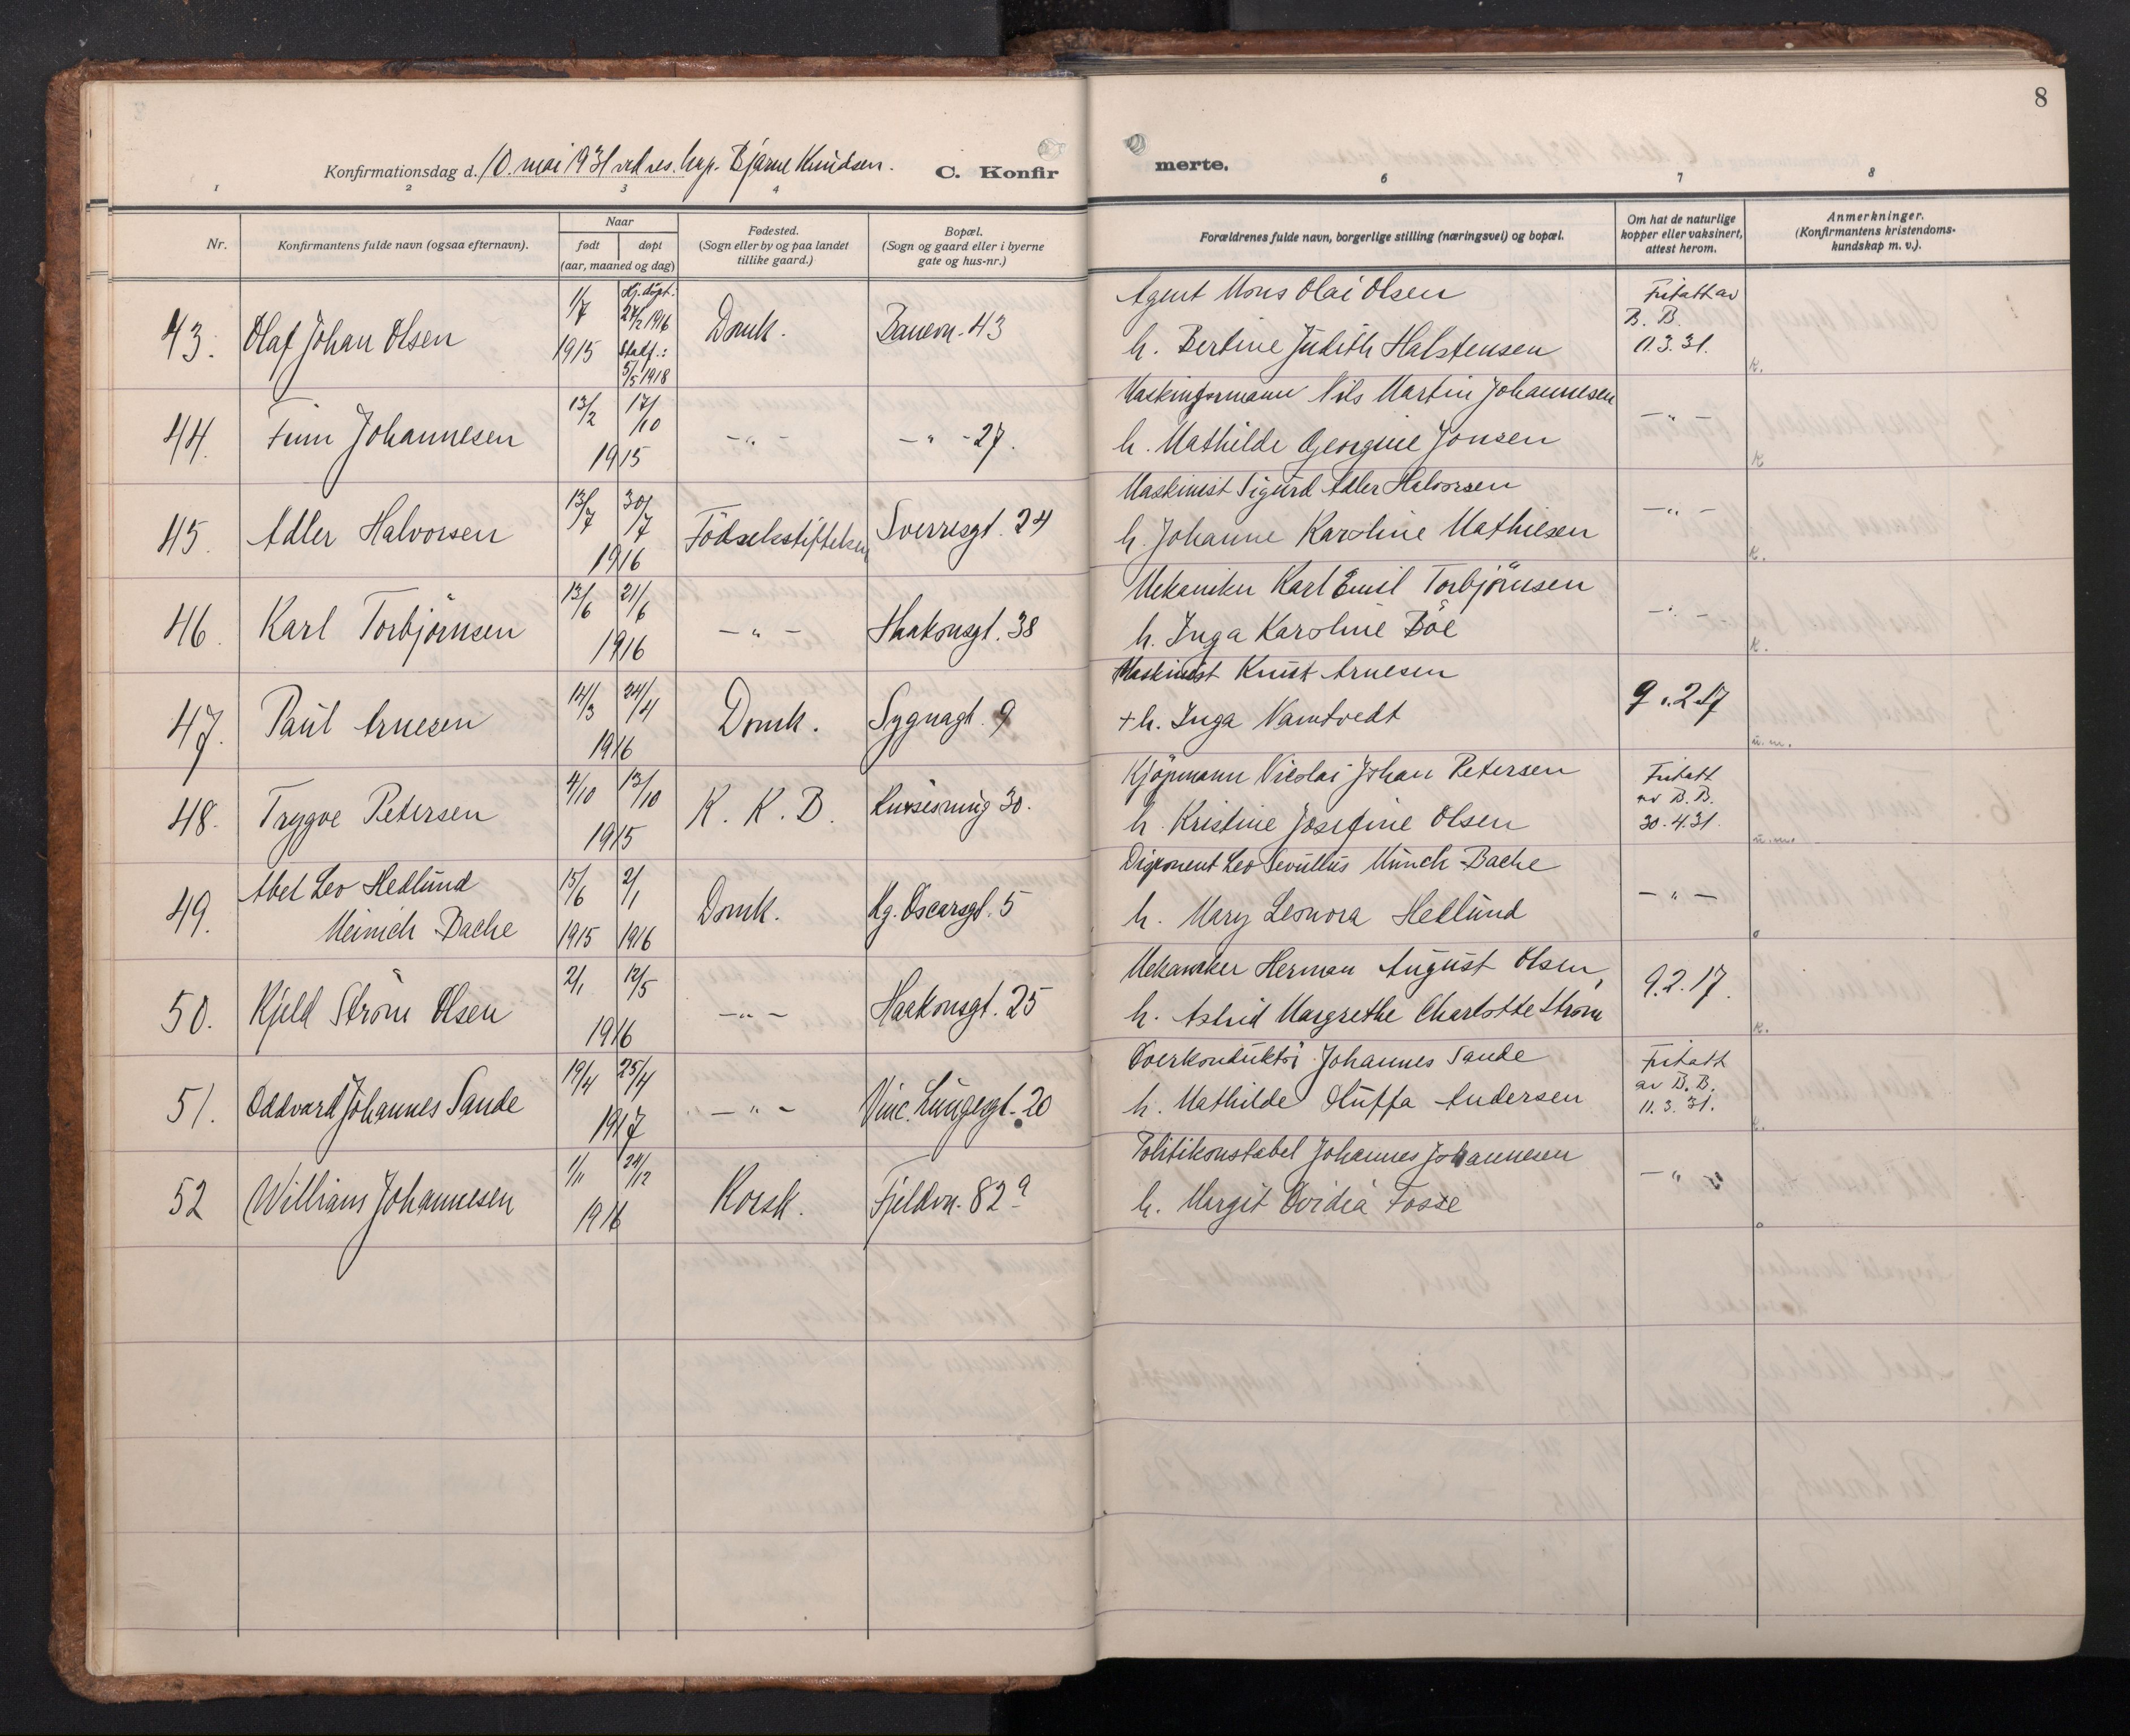 8
Konfirmationsdag d. 10. mai 1931 ved res. kap. Bjarne Knudsen. C. Konfir merte.
1 2 3 4 6 7 8
Nr. Konfirmantens fulde navn (ogsaa efternavn). Naar født døpt (aar, maaned og dag) Fødested. (Sogn eller by og paa landet tillike gaard.) Bopæl. (Sogn og gaard eller i byerne gate og hus-nr.) Forældrenes fulde navn, borgerlige stilling (næringsvei) og bopæl. Om hat de naturlige kopper eller vaksinert, attest herom. Anmerkninger. (Konfirmantens kristendoms-kundskap m. v.).
43. Olaf Johan Olsen 1/7 1915 Hj. døpt: 27/2 1916 Stadf.: 5/5 1918 Domk. Banevn. 43 Agent Mons Olai Olsen
h. Bertine Judith Halstensen Fritatt av B. B. 11.3.31. K.
44. Finn Johannesen 13/2 17/10 1915 — " — — " - 27. Maskinformann Nils Martin Johannesen
h. Mathilde Georgine Jonsen — " — K
45. Adler Halvorsen 13/7 30/7 1916 Födselsstiftelsen Sverresgt. 24 Maskinist Sigurd Adler Halvorsen
h. Johanne Karoline Mathiesen — " — K.
46. Karl Torbjörnsen 13/6 21/6 1916 — " — Haakonsgt. 38 Mekaniker Karl Emil Torbjörnsen
h. Inga Karoline Böe — " — K.
47. Paul Arnesen 14/3 24/4 1916 Domk. Sygnagt. 9 Maskinist Knut Arnesen
+ h. Inga Vamtvedt 9.2.17 u. m.
48. Trygve Petersen 4/10 13/10 1915 K. K. B. 30. Kjöpmann Nicolai Johan Petersen
h. Kristine Josefine Olsen Fritatt av B. B. 30.4.31.
49. Abel Leo Hedlund
Meinich Bache 15/6 1915 2/1 1916 Domk. Kg. Oscarsgt. 5 Disponent Leo Münch-Bache
h. Mary Leonora Hedlund — " — o
50. Kjeld Ström Olsen 2/1 12/5 1916 — " — Haakonsgt. 25 Mekaniker Herman August Olsen,
h. Astrid Margrethe Charlotte Strøm 9.2.17. K.
51. Oddvard Johannes Sande 19/4 25/4 1917 — " — Vinc. Lungesgt. 20 Overkonduktör Johannes Sande
h. Mathilde Andersen Fritatt av B. B. 11.3.31. K.
52 William Johannesen 1/11 24/12 1916 Korsk. Fjeldvn. 82a Politikonstabel Johannes Johannesen
h. Margit Ovidia Fosse — " — o